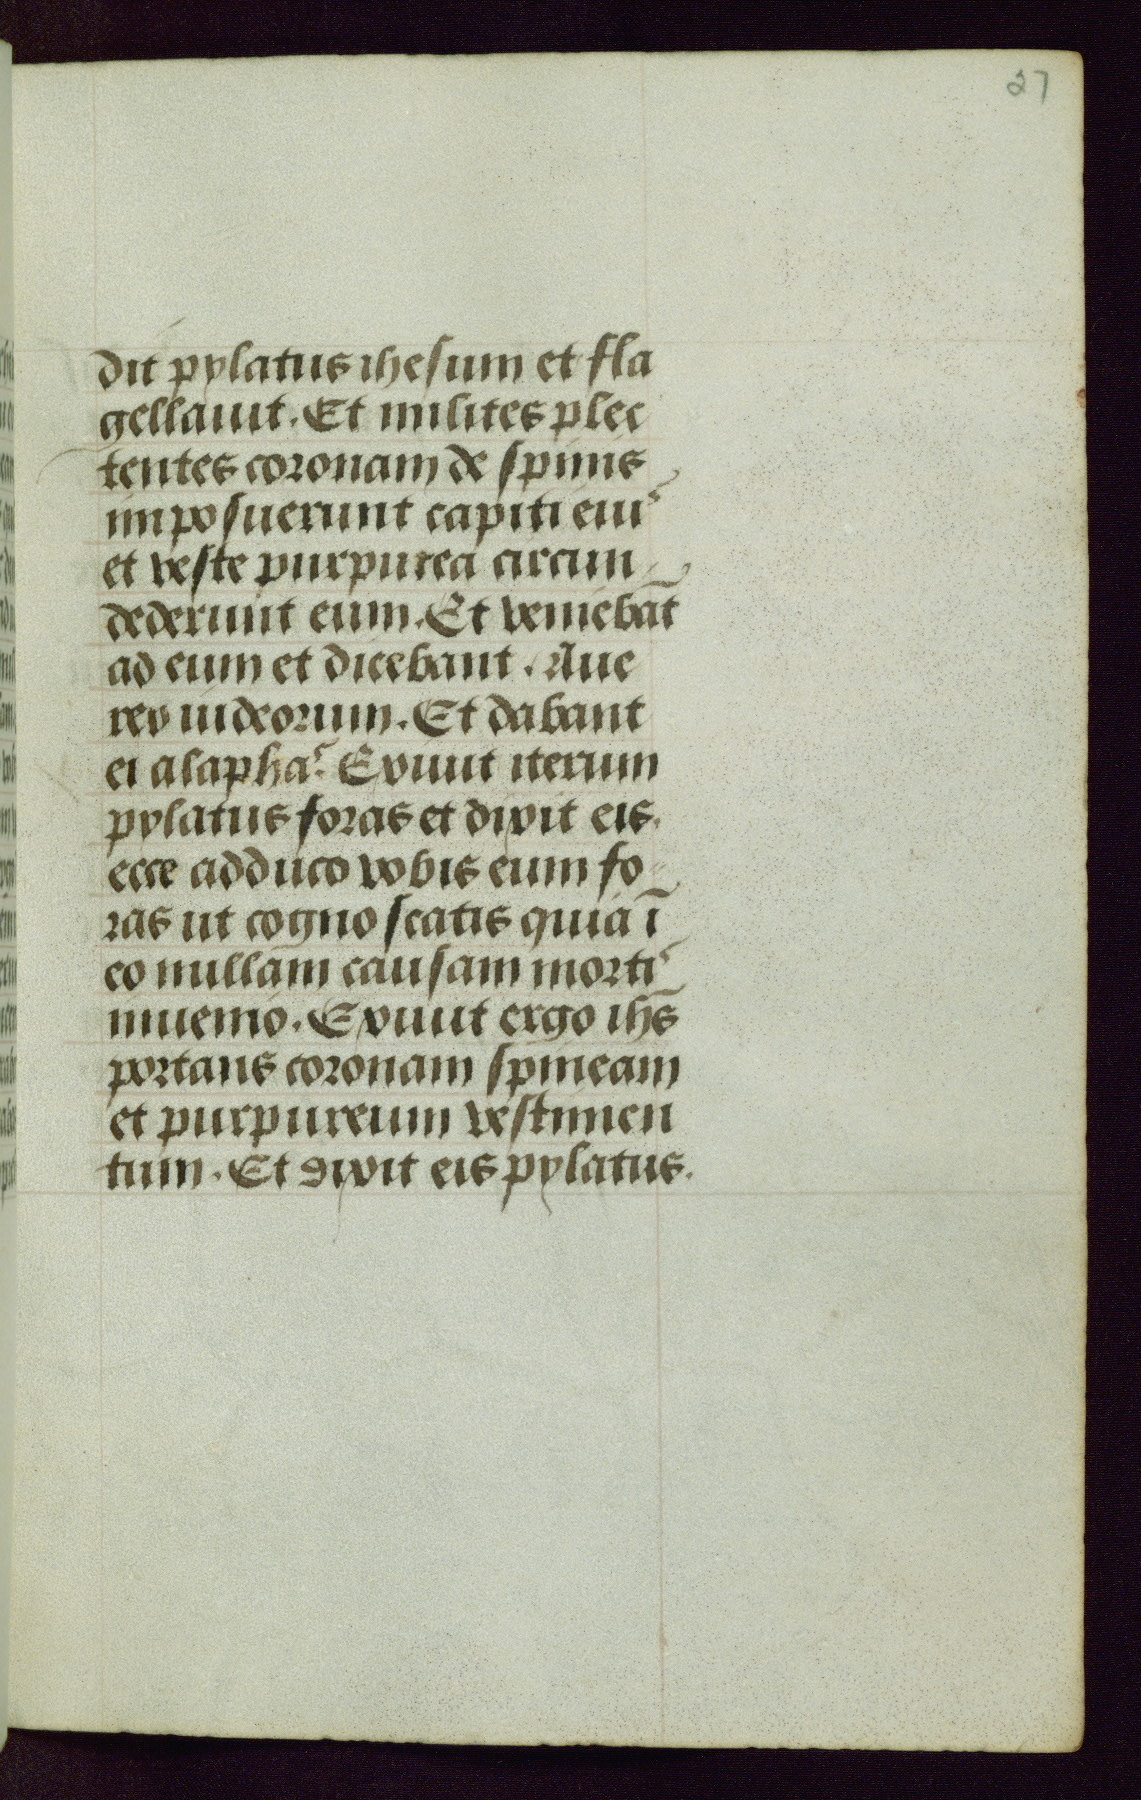 27
dit pylatus ihesum et fla
gellauit. Et milites plec
tentes coronam de spinis
imposuerunt capiti eius
et veste purpurea circun
dederunt eum. Et veniebāt
ad eum et dicebant. Aue
rex iudeorum. Et dabant
ei alaphas. Exiuit iterum
pylatus foras et dixit eis.
ecce adduco vobis eum fo
ras ut cognoscatis quia ī
eo nullam causam mortis
inuenio. Exiuit ergo ihs̄
portans coronam spineam
et purpureum vestimen
tum. Et dixit eis pylatus.